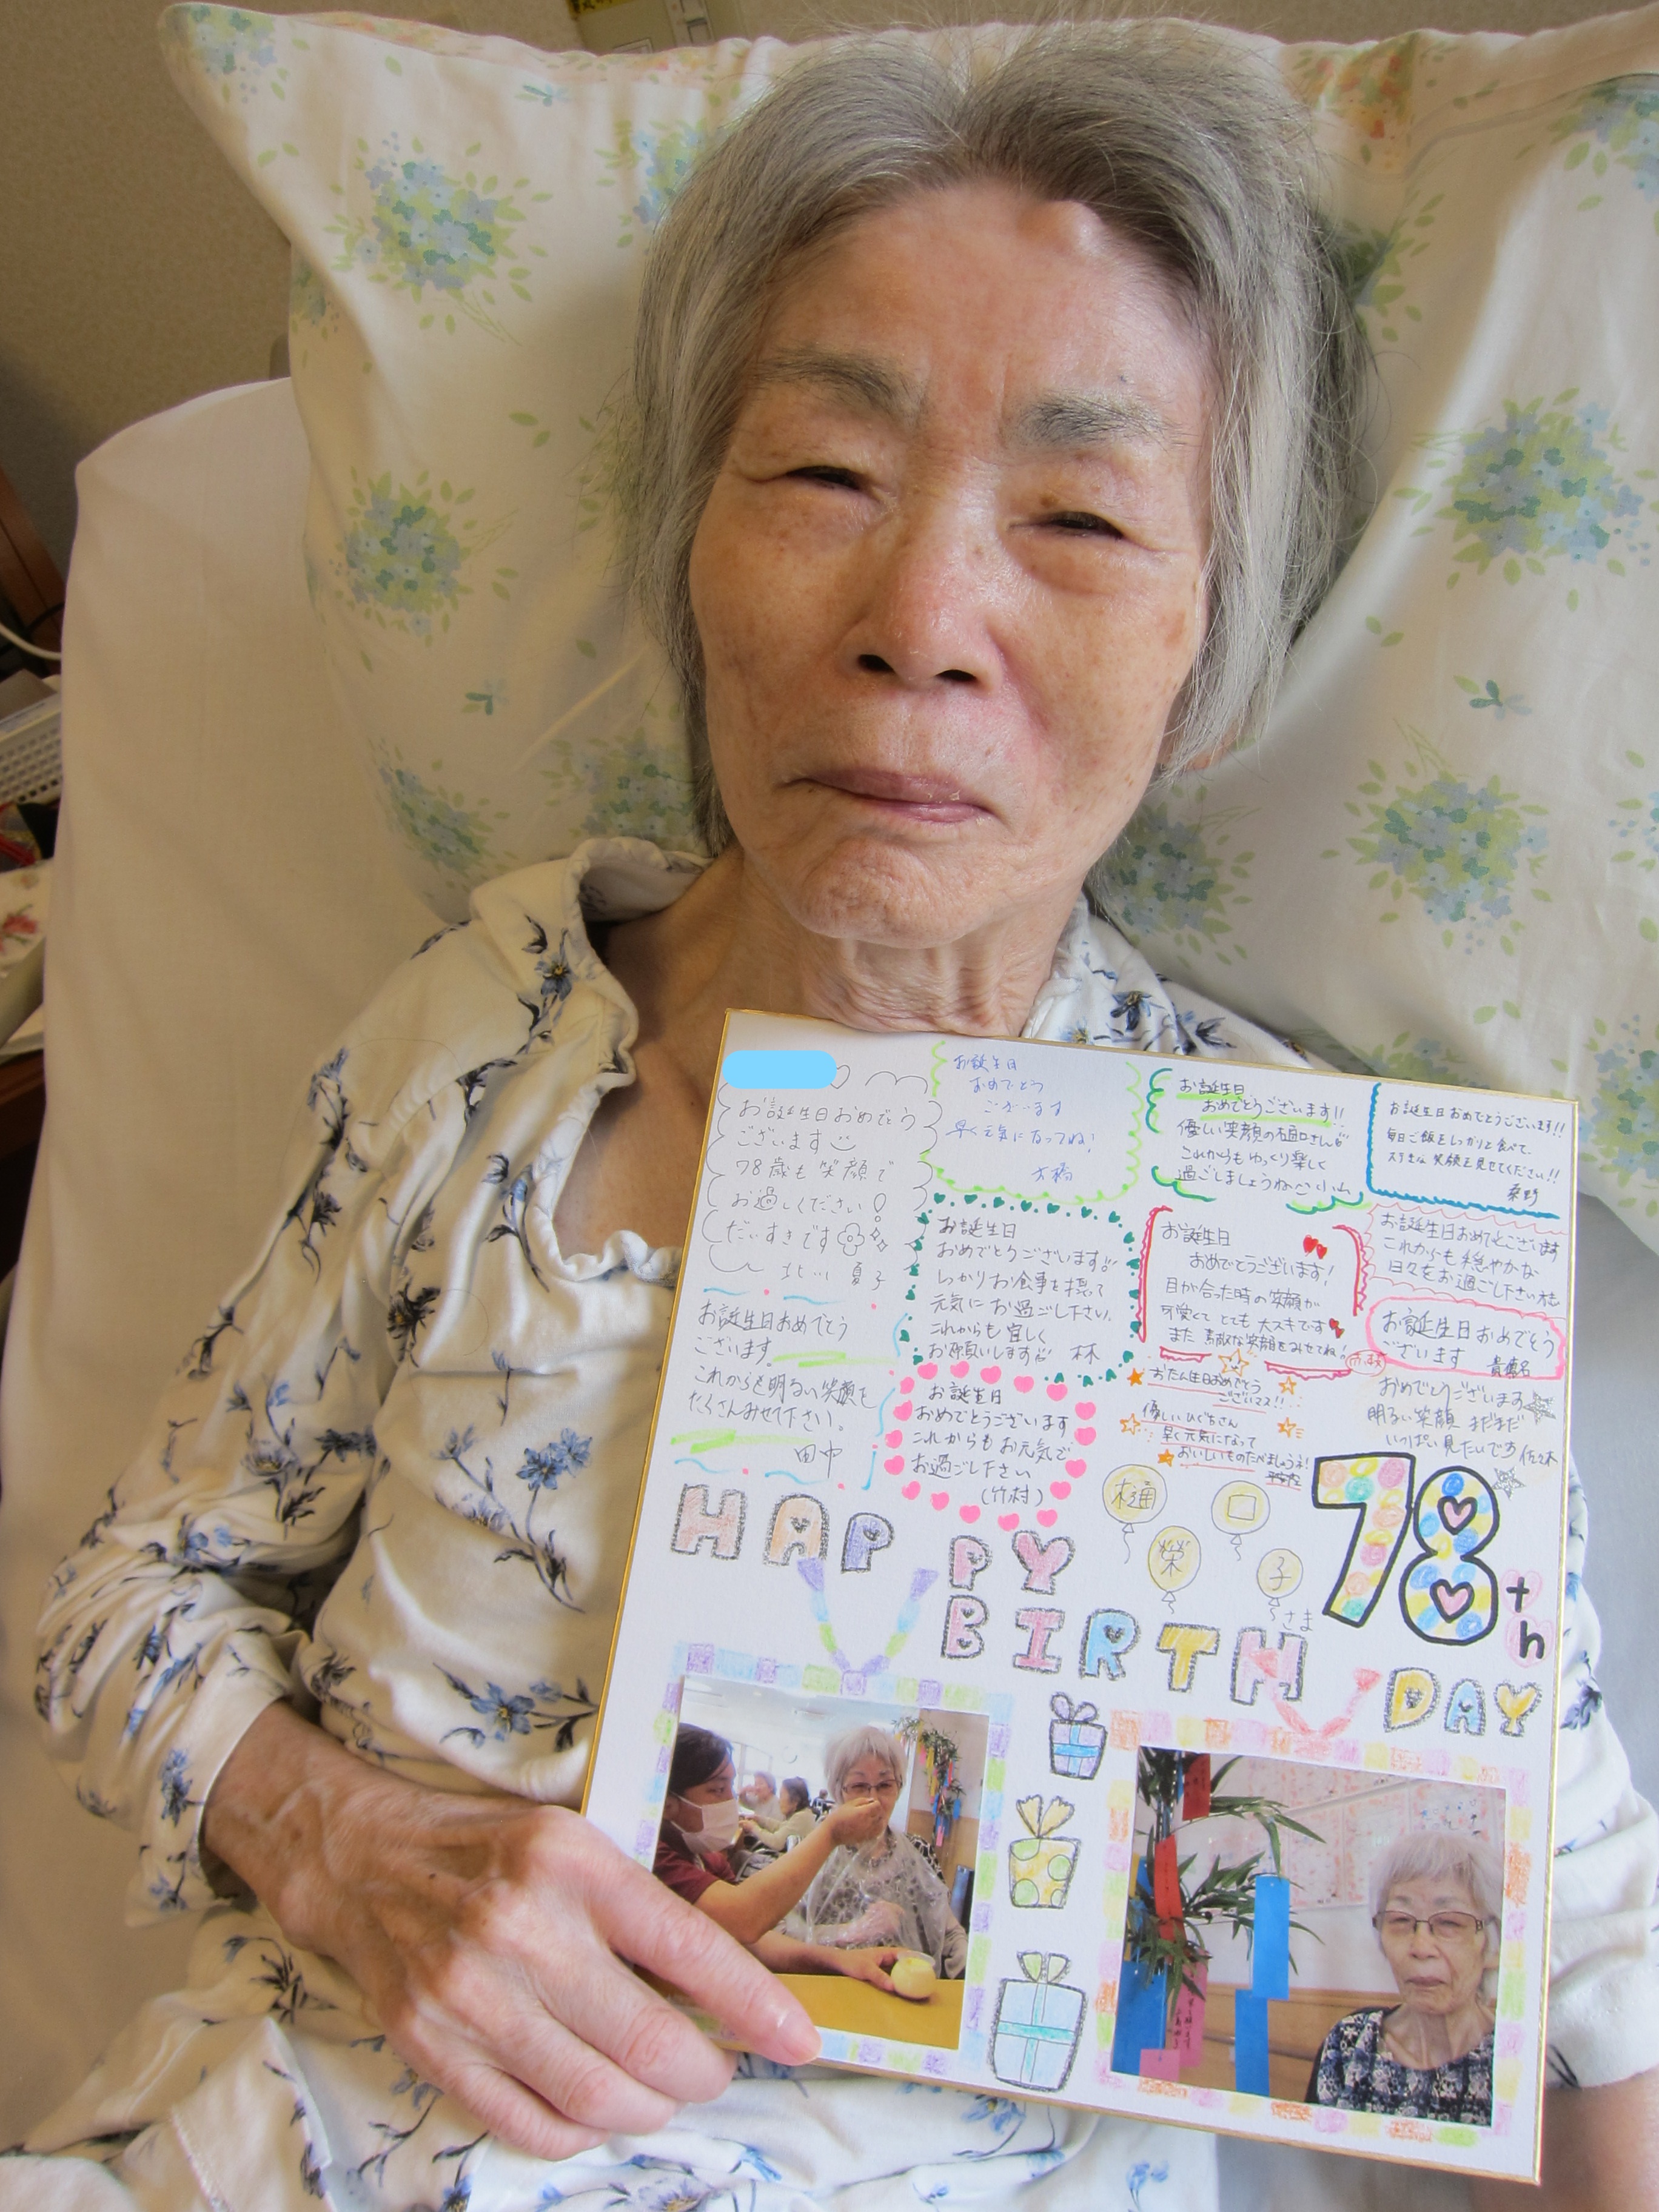 お誕生日おめでとう
ございます
78歳も笑顔で
お過しください!
だいすきです
北川 夏子
お誕生日
おめでとう
ございます
早く元気になってね!
大橋
お誕生日
おめでとうございます!!
優しい笑顔の樋口さん
これからもゆっくり楽しく
過ごしましょうね 小山
お誕生日おめでとうございます!!
毎日ご飯をしっかりと食べて、
ステキな笑顔を見せてください!!
桑野
お誕生日おめでとうございます
これからも明るい笑顔を
たくさんみせて下さい。
田中
お誕生日
おめでとうございます!!
しっかりお食事を摂って
元気にお過ごし下さい。
これからも宜しく
お願いします 林
お誕生日
おめでとうございます!
目が合った時の笑顔が
可愛くてとても大スキです
また素敵な笑顔をみせてね!
お誕生日おめでとうございます
これからも穏やかな
日々をお過ごし下さい
お誕生日おめでとう
ございます
お誕生日
おめでとうございます
これからもお元気で
お過ごし下さい
(竹村)
おたん生日おめでとう
ございマス!!
優しいひぐちさん
早く元気になって
おいしいものたべましょうネ!
おめでとうございます
明るい笑顔 まだまだ
いっぱい見たいです 佐々木
樋口
榮子
さま
78th
HAPPY
BIRTH DAY